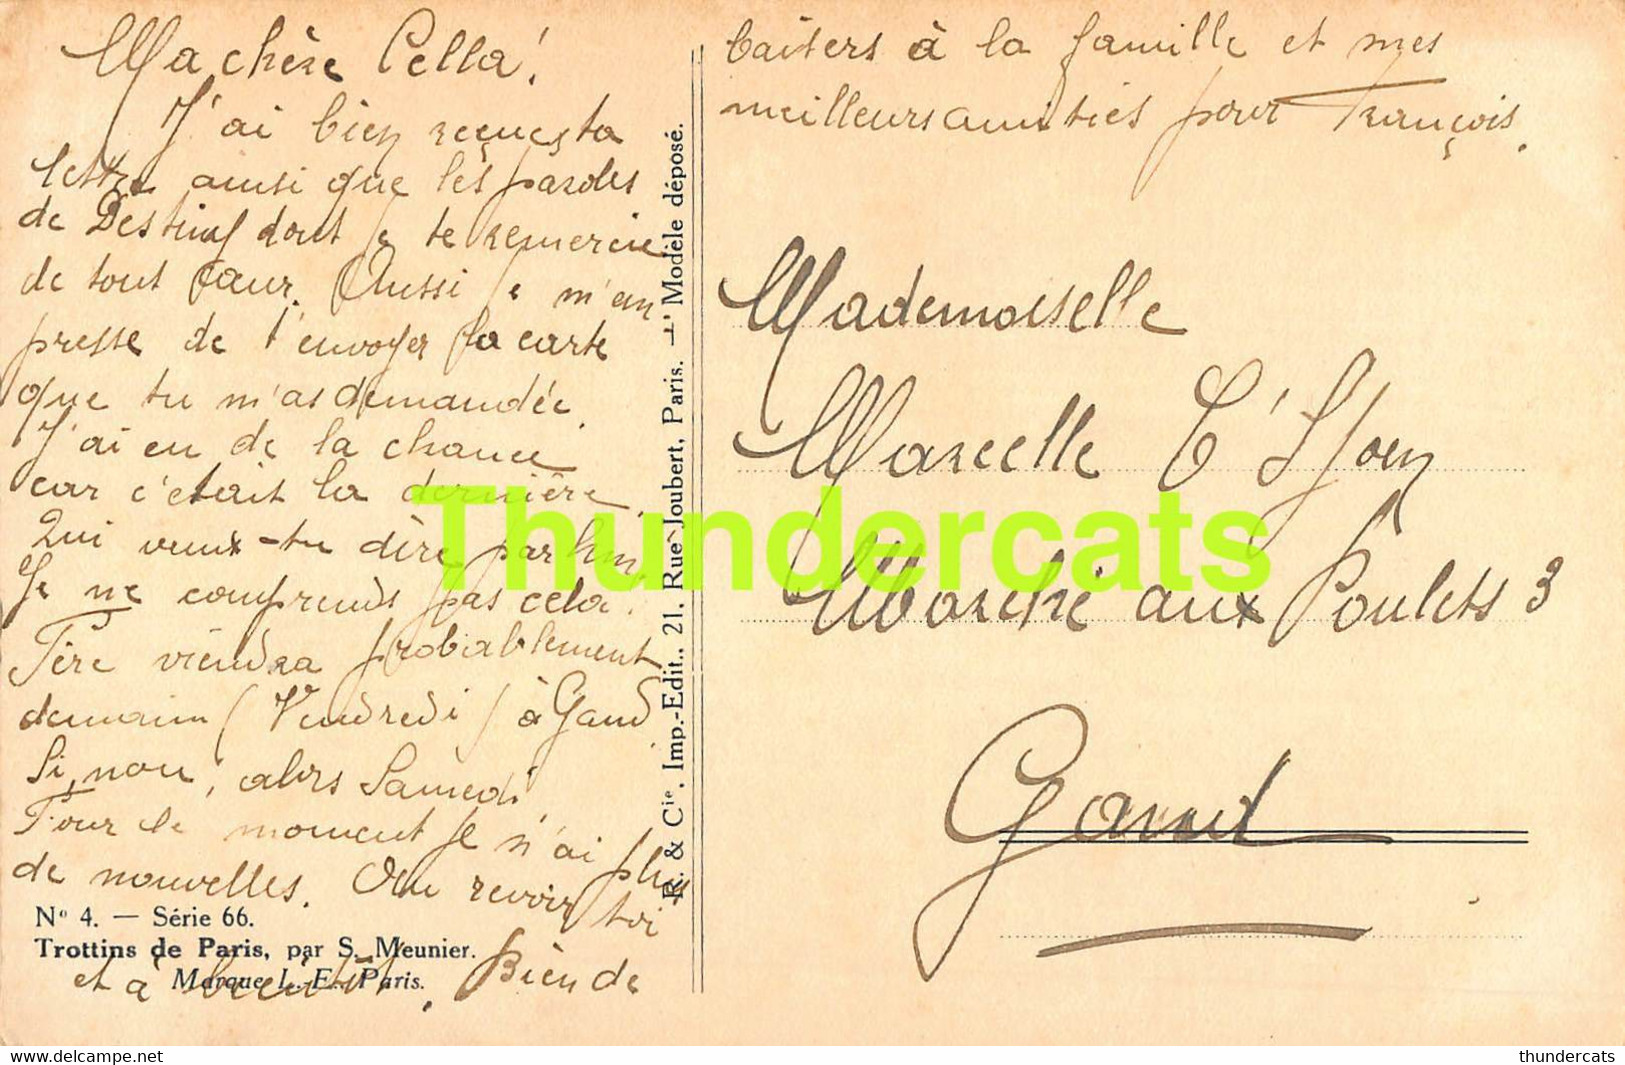 Ma chère Cella!
J'ai bien reçues ta
lettre ainsi que les paroles
de Destiny dont je te remercie
de tout cœur. Aussi je m'em
presse de t'envoyer la carte
que tu m'as demandée.
J'ai eu de la chance
car c'était la dernière.
Qui veux-tu dire par
Je ne comprends pas cela!
Père viendra probablement
demain (Vendredi) à Gand
Si, non, alors Samedi
Pour le moment je n'ai plus
de nouvelles. Au revoir toi
et à bientôt. Bien de
baisers à la famille et mes
meilleurs amitiés pour François.
Mademoiselle
Marcelle T'Sjoen
Marché aux Poulets 3
Gand
Nº 4. — Série 66.
Trottins de Paris, par S. Meunier.
Marque L.-E. Paris.
R. & Cie. Imp.-Edit., 21, Rue Joubert, Paris. — Modèle déposé.
Thundercats
delcampe.net
thundercats